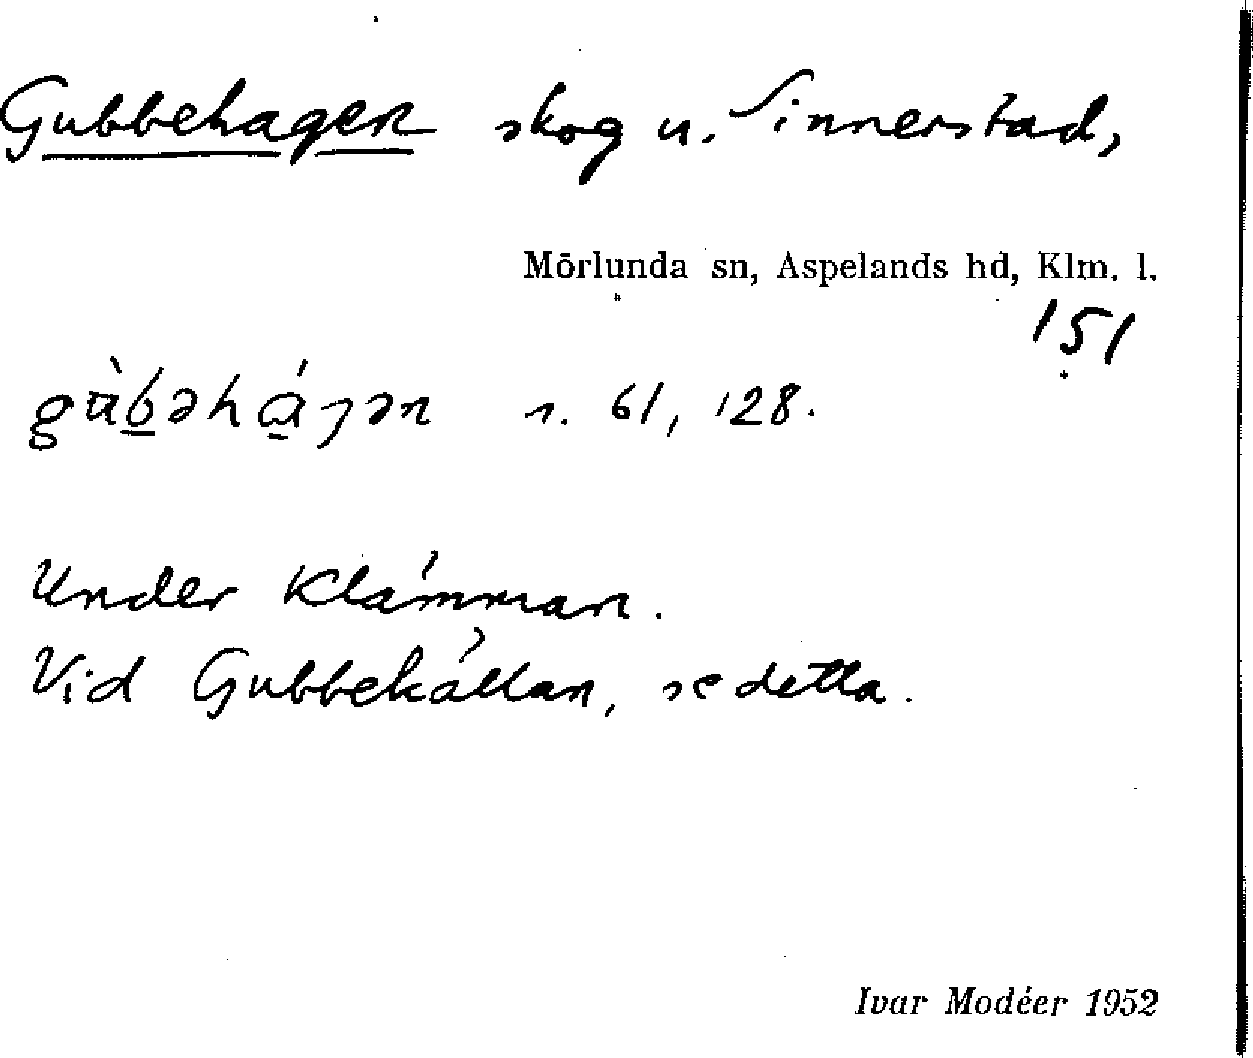 Gubbehagen skog u. Sinnerstad,
Mörlunda sn, Aspelands hd, Klm. l.
151
gùb̲əhá̲ɟən r. 61, 128.
Under Klämman.
Vid Gubbekällan, se detta.
Ivar Modéer 1952